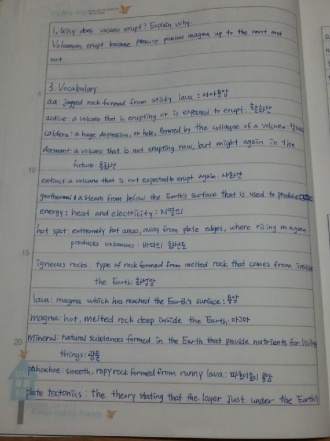 1. Why does vocano erupt? Explain why.
Volcanoes erupt because pressure pushes magma up to the vent and
out.
3. Vocabulary
aa: jagged rock formed from sticky lava : 아아용암
active: a volcano that is erupting or is expected to erupt. 활화산
caldera: a huge depression, or hole, formed by the collapse of a volcano.
dormant: a volcano that is not erupting now, but might again in the
future. 휴화산
extinct: a volcano that is not expected to erupt again. 사화산
geothermal: steam from below the Earth's surface that is used to produce
energy: heat and electricity: 지열의
hot spot: extremely hot areas, away from plate edges, where rising magma
produces volcanoes:
igneous rocks: type of rock formed from melted rock that comes from inside
the Earth: 화성암
lava: magma which has reached the Earth's surface: 용암
magma: hot, melted rock deep inside the Earth, 마그마
mineral: natural substances formed in the Earth that provide nutrients for living
things: 광물
pahoehoe: smooth, ropy rock formed from runny lava: 파호이호이 용암
plate tectonics: the theory stating that the layer just under the Earth's